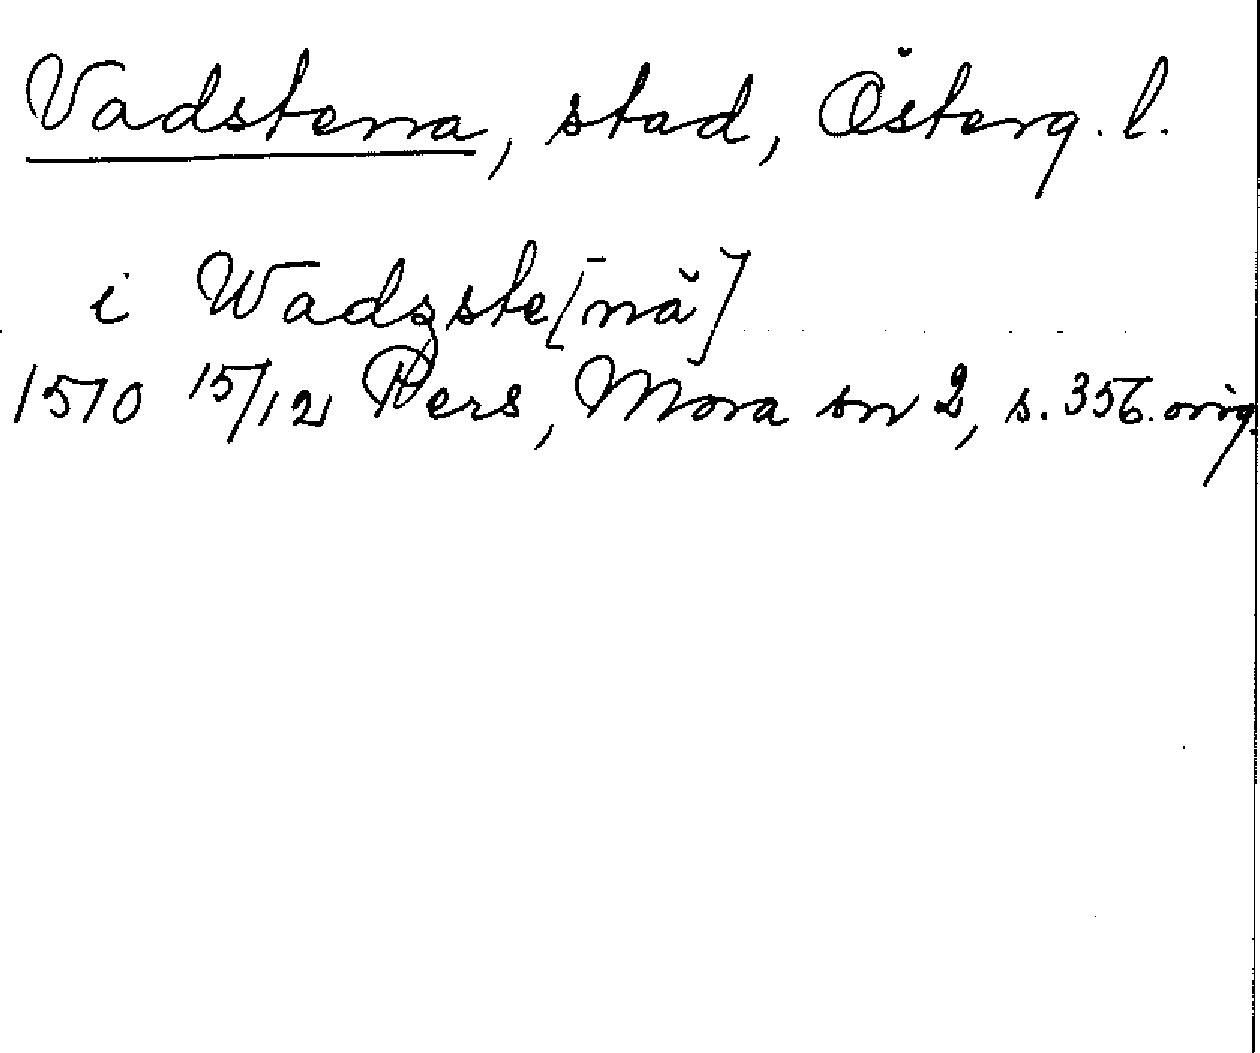 Vadstena, stad, Österg. l.
i Wadzste[nä]
1570 15/12 Pers, Mora sn 2, s. 356. orig.